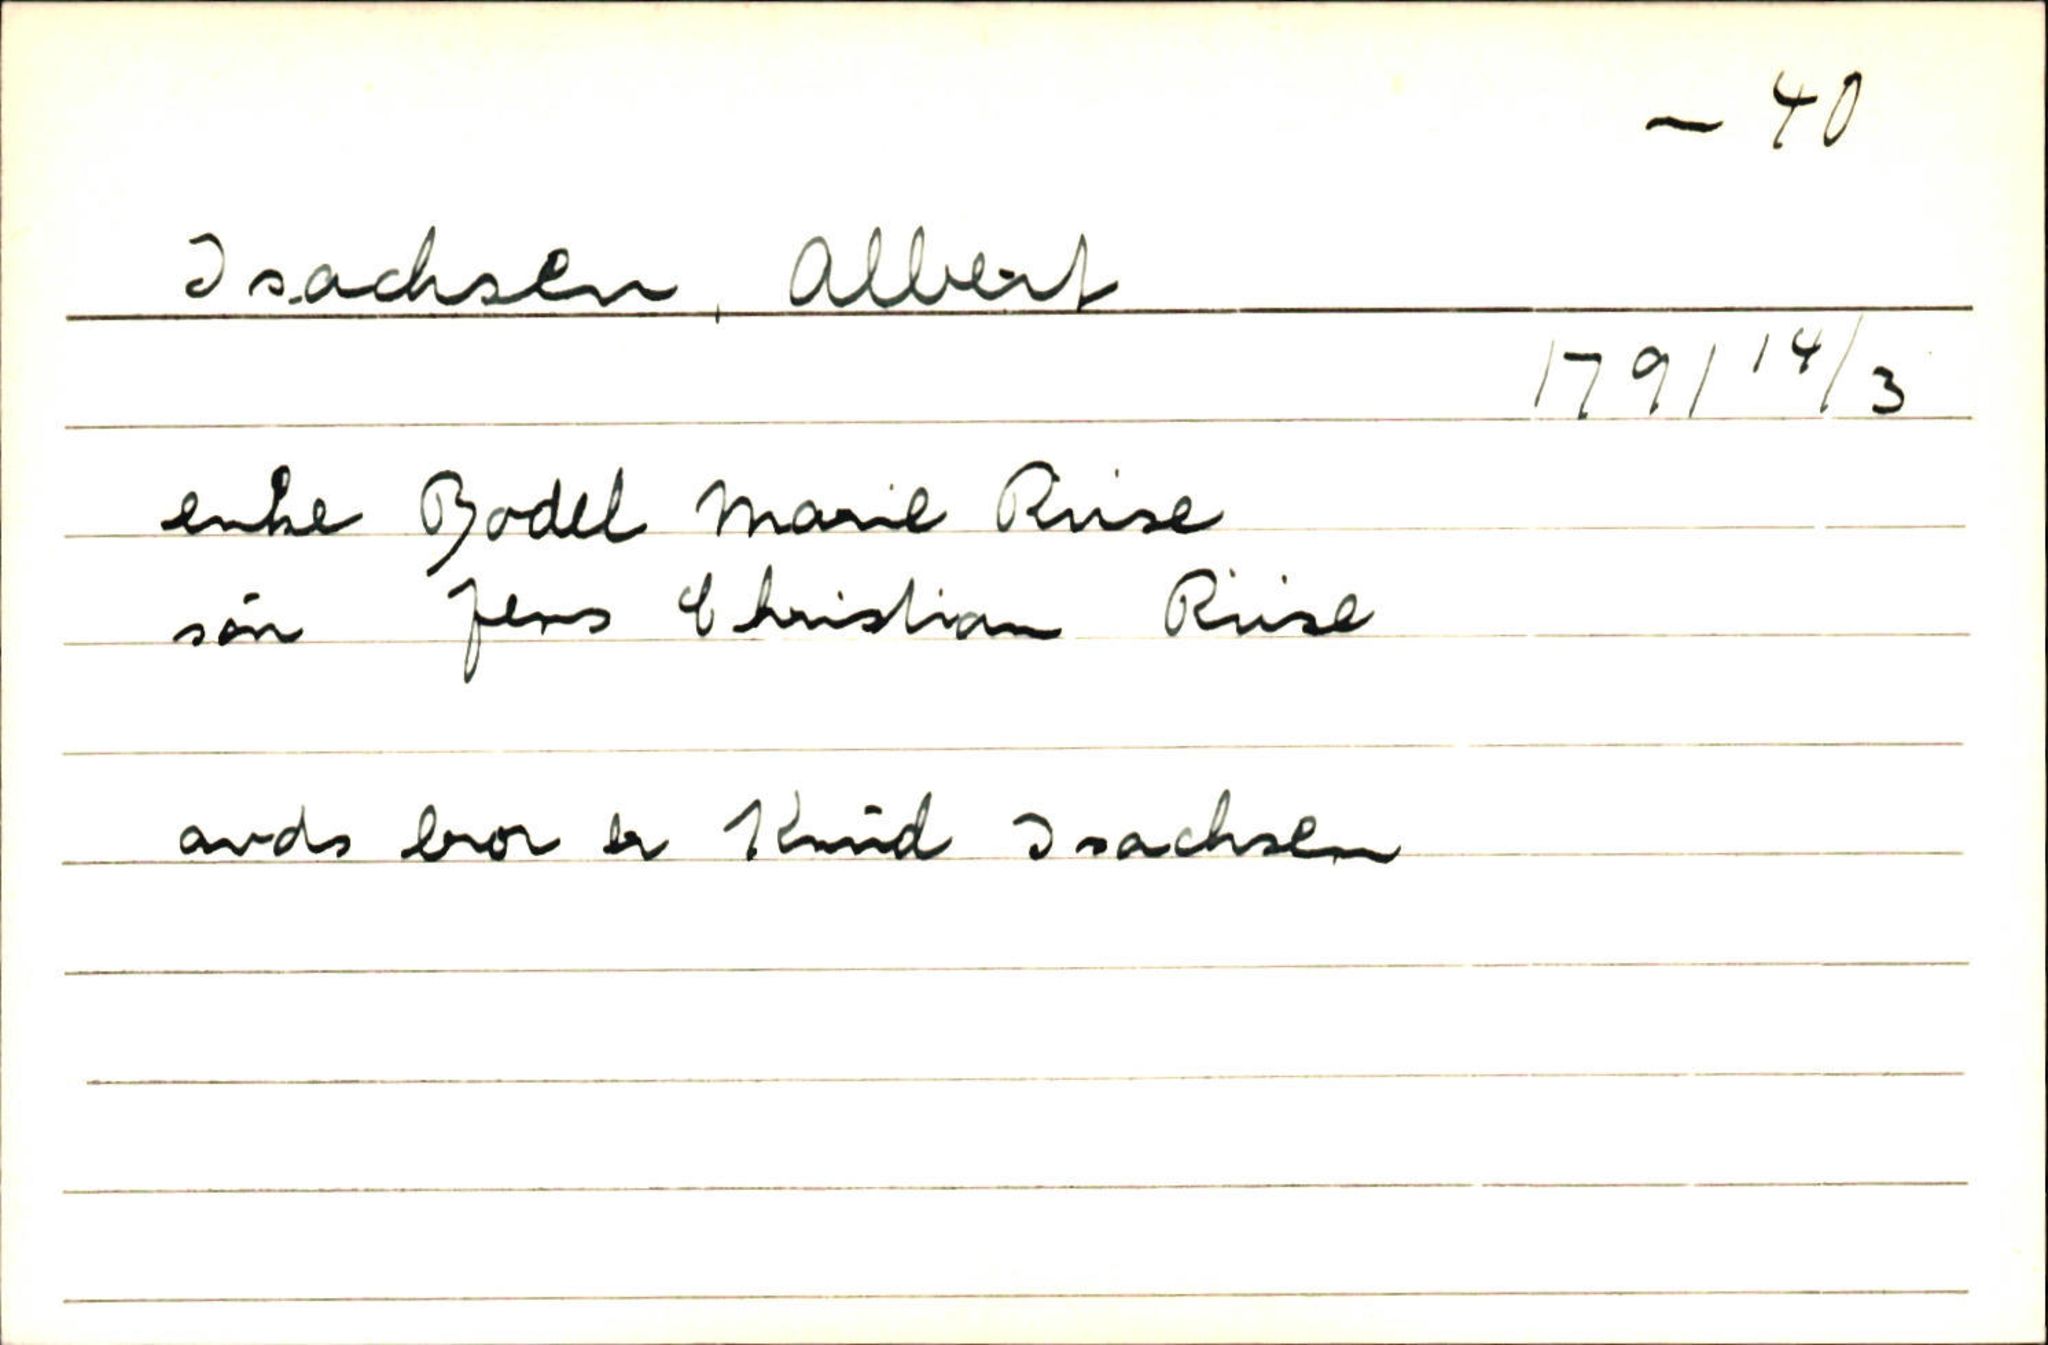 - 40
Isachsen, Albert
1791 14/3
enke Bodel Marie Riise
søn Jens Christian Riise
avds bror er Knud Isachsen